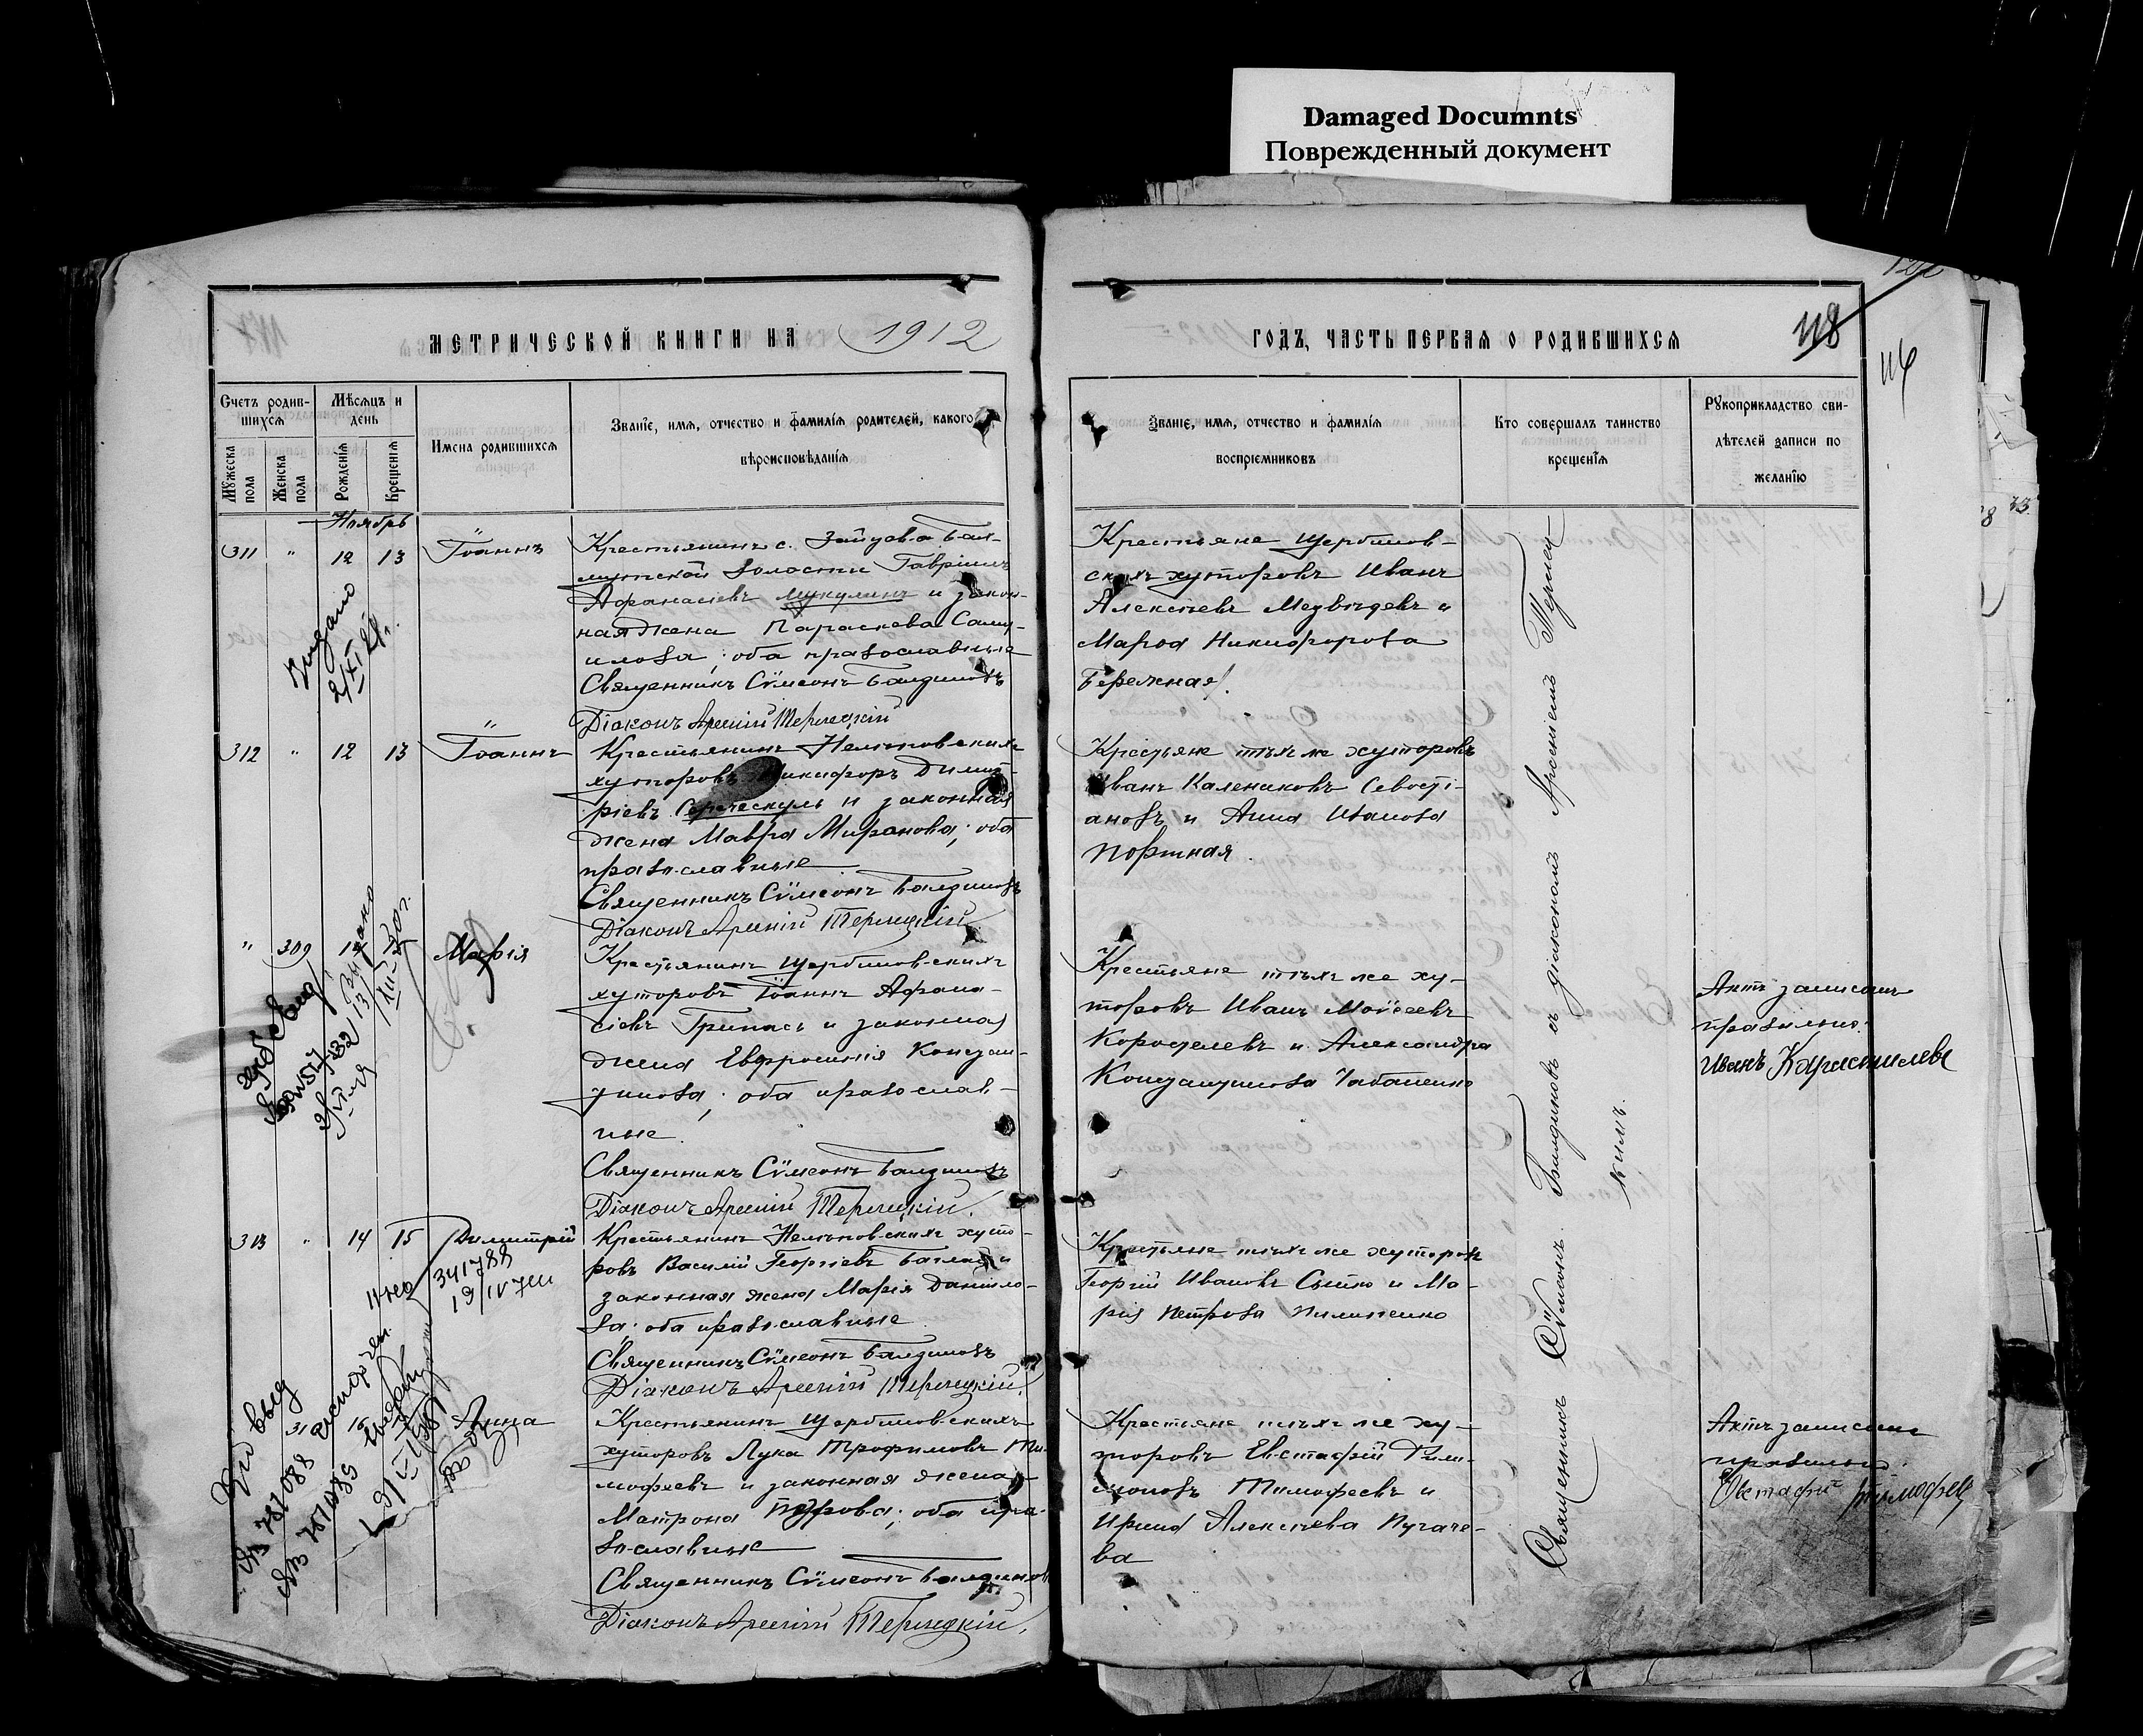 Damaged Documnts
Поврежденный документ
МЕТРИЧЕСКОЙ КНИГИ НА 1912
ГОДЪ, ЧАСТЬ ПЕРВАЯ О РОДИВШИХСЯ
118
116
Счетъ родив-
шихся
Мѣсяцъ и
день
Мужеска
пола
Женска
пола
Рожденія
Крещенія
Имена родившихся
Званіе, имя, отчество и фамилія родителей, какого
вѣроисповѣданія
Званіе, имя, отчество и фамилія
воспріемниковъ
Кто совершалъ таинство
крещенія
Рукоприкладство сви-
дѣтелей записи по
желанію
Ноябрь
311 " 12 13 Іоаннъ
Крестьянинъ с. Зайцева Бах-
мутской волости Гавріилъ
Афанасіевъ и закон-
ная жена Параскева Саму-
илова; оба православные
Священникъ Сѵмеонъ Балдиновъ
Діаконъ Арсеній Терлецкій
Крестьяне Щербинов-
скихъ хуторовъ Иванъ
Алексѣевъ Медвѣдевъ и
Марфа Никифорова
Бережная
Выдано
312 " 12 13 Іоаннъ
Крестьянинъ Нелѣповскихъ
хуторовъ Никифоръ Димит-
ріевъ и законная
жена Мавра Миранова; оба
православные
Священникъ Сѵмеонъ Балдиновъ
Діаконъ Арсеній Терлецкій
Крестьяне тѣхъ же хуторовъ
Иванъ Калениковъ Севості-
ановъ и Анна Иванова
Портная.
" 309 Марія
Крестьянинъ Щербиновскихъ
хуторовъ Іоаннъ Афана-
сіевъ Грипась и законная
жена Евфросинія Констан-
тинова; оба православ-
ные.
Священникъ Сѵмеонъ Балдиновъ
Діаконъ Арсеній Терлецкій.
Крестьяне тѣхъ же ху-
торовъ Иванъ Моѵсеевъ
и Александра
Константинова Чабаненко
Актъ записанъ
правильно:
Иванъ
313 " 14 15 Димитрій
341788
Крестьянинъ Нелѣповскихъ хуто-
ровъ Василій Георгіевъ Баглай и
законная жена Марія Данило-
ва; оба православные
Священникъ Сѵмеонъ Балдиновъ
Діаконъ Арсеній Терлецкій.
Крестьяне тѣхъ же хуторовъ
Георгій Ивановъ Сытко и Ма-
рія Петрова Пилипенко
Анна
Крестьянинъ Щербиновскихъ
хуторовъ Лука Трофимовъ Ти-
мофеевъ и законная жена
Матрона Петрова; оба пра-
вославные
Священникъ Сѵмеонъ Балдиновъ
Діаконъ Арсеній Терлецкій.
Крестьяне тѣхъ же ху-
торовъ Евстафій Фили-
моновъ Тимофеевъ и
Ирина Алексѣева Пугаче-
ва
Актъ записанъ
правильно.
Евстафій Тимофеев
Священникъ Сѵмеонъ Балдиновъ съ діакономъ Арсеніемъ Терлец-
кимъ.